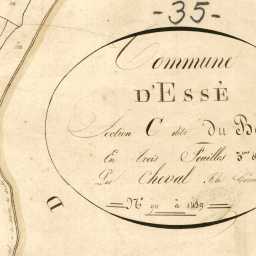 -35-
Commune
D'ESSÉ
Section C dite Du
En trois Feuilles 3me
Par Cheval
D